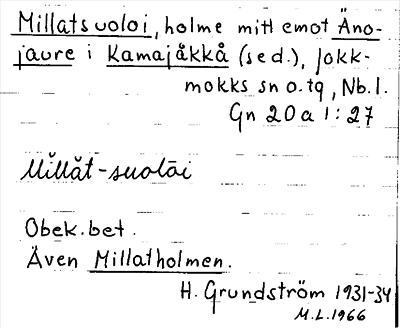 Millatsuoloi, holme mitt emot Äno-
jaure i Kamajåkkå (sed.), Jokk-
mokks sn o. tg, Nb.l.
Gn 20a 1:27
Mĭllăt-suolōi
Obek. bet.
Även Millatholmen.
H. Grundström 1931-34
M.L. 1966